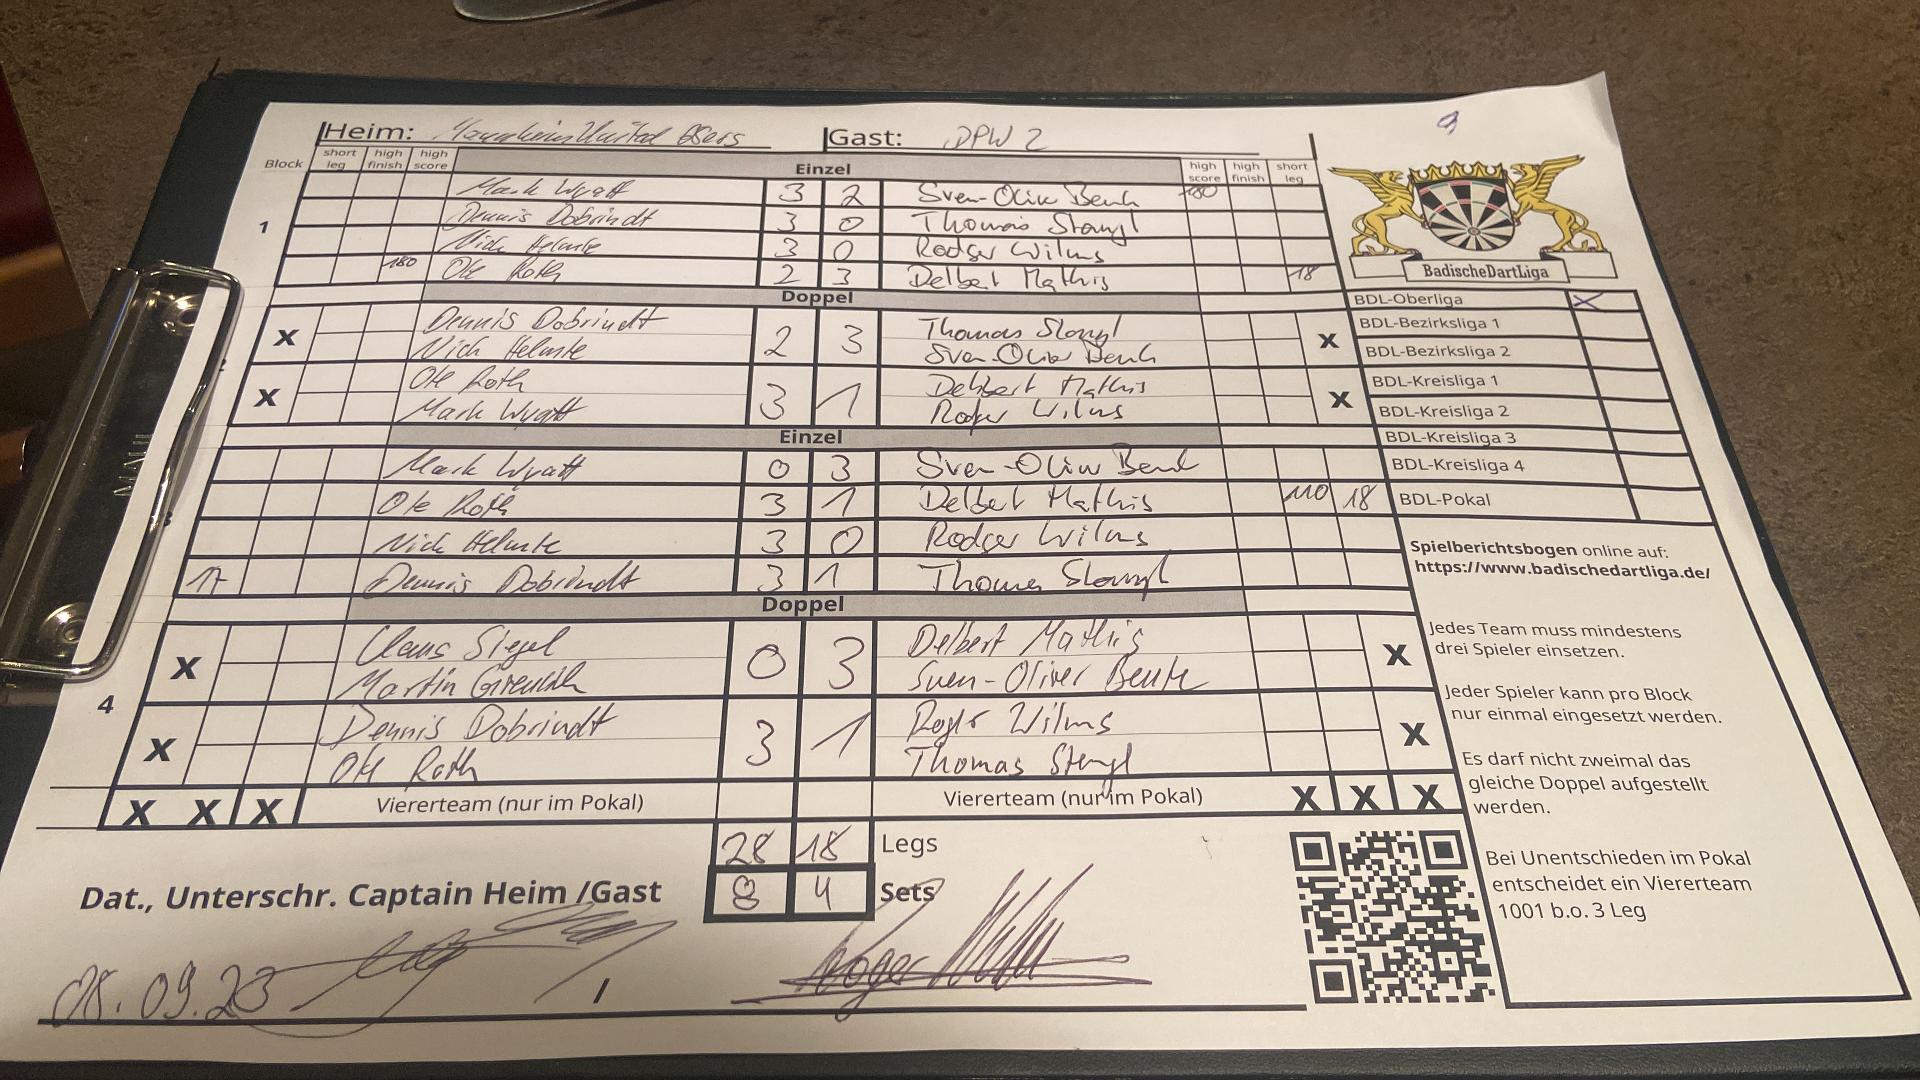 Heim: Mannheim United 65ers Gast: DPW 2
9
Block short leg high finish high score Einzel high score high finish short leg
1
Mark Wyatt 3 2 Sven-Oliver Benk 180
Dennis Dobrindt 3 0 Thomas Stangl
Nick Helmke 3 0 Rodger Wilms
180 Ole Roth 2 3 Delbert Mathis 18
Doppel
X Dennis Dobrindt 2 3 Thomas Stangl X
Nick Helmke Sven Oliver Benk
X Ole Roth 3 1 Delbert Mathis X
Mark Wyatt Rodger Wilms
Einzel
Mark Wyatt 0 3 Sven-Oliver Benk
Ole Roth 3 1 Delbert Mathis 110 18
Nick Helmke 3 0 Rodger Wilms
17 Dennis Dobrindt 3 1 Thomas Stangl
Doppel
4
X Claus Siegel 0 3 Delbert Mathis X
Martin Sven-Oliver Benk
X Dennis Dobrindt 3 1 Roger Wilms X
Ole Roth Thomas Stengl
X X X Viererteam (nur im Pokal) Viererteam (nur im Pokal) X X X
28 18 Legs
8 4 Sets
Dat., Unterschr. Captain Heim /Gast
08.09.23 / Roger
BadischeDartLiga
BDL-Oberliga X
BDL-Bezirksliga 1
BDL-Bezirksliga 2
BDL-Kreisliga 1
BDL-Kreisliga 2
BDL-Kreisliga 3
BDL-Kreisliga 4
BDL-Pokal
Spielberichtsbogen online auf:
https://www.badischedartliga.de/
Jedes Team muss mindestens
drei Spieler einsetzen.
Jeder Spieler kann pro Block
nur einmal eingesetzt werden.
Es darf nicht zweimal das
gleiche Doppel aufgestellt
werden.
Bei Unentschieden im Pokal
entscheidet ein Viererteam
1001 b.o. 3 Leg